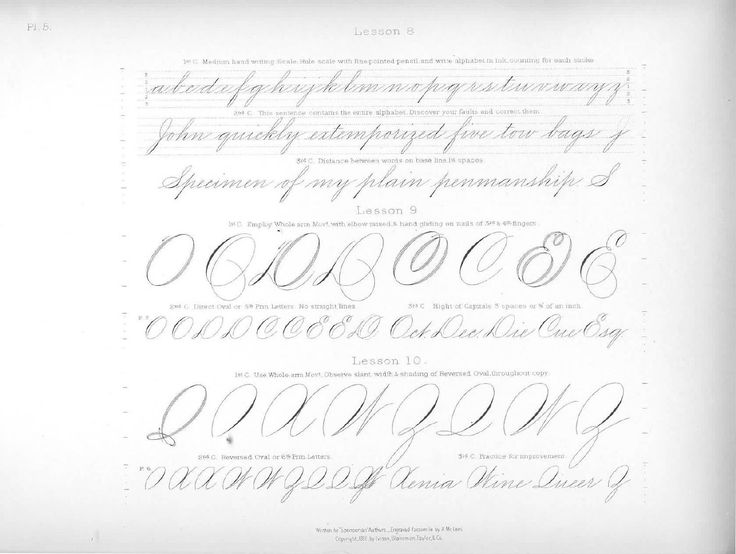 Pl. 5.
Lesson 8
1st C. Medium hand writing Scale. Rule scale with fine pointed pencil, and write alphabet in ink, counting for each stroke
a b c d e f g h i j k l m n o p q r s t u v w x y z
2nd C. This sentence contains the entire alphabet. Discover your faults and correct them.
John quickly extemporized five tow bags J
3rd C. Distance between words on base line 1½ spaces.
Specimen of my plain penmanship. S
Lesson 9
1st C. Employ Whole arm Movt. with elbow raised, & hand gliding on nails of 3rd & 4th fingers.
O C D D O C E E
2nd C. Direct Oval or 5th Prin. Letters. No straight lines. 3rd C. Hight of Capitals 3 spaces or ⅜ of an inch.
P. 5 O O D D C C E E D Oct. Dec. Die Cue Esq.
Lesson 10.
1st C. Use Whole arm Movt. Observe slant, width & shading of Reversed Oval, throughout copy.
Q I X W Z Q W Z
2nd C. Reversed Oval or 6th Prin. Letters. 3rd C. Practice for improvement
P. 6 Xenia Wine Queer Z
Written by "Spencerian" Authors. Engraved facsimile by A. McLees.
Copyright, by Ivison, Blakeman, Taylor, & Co.